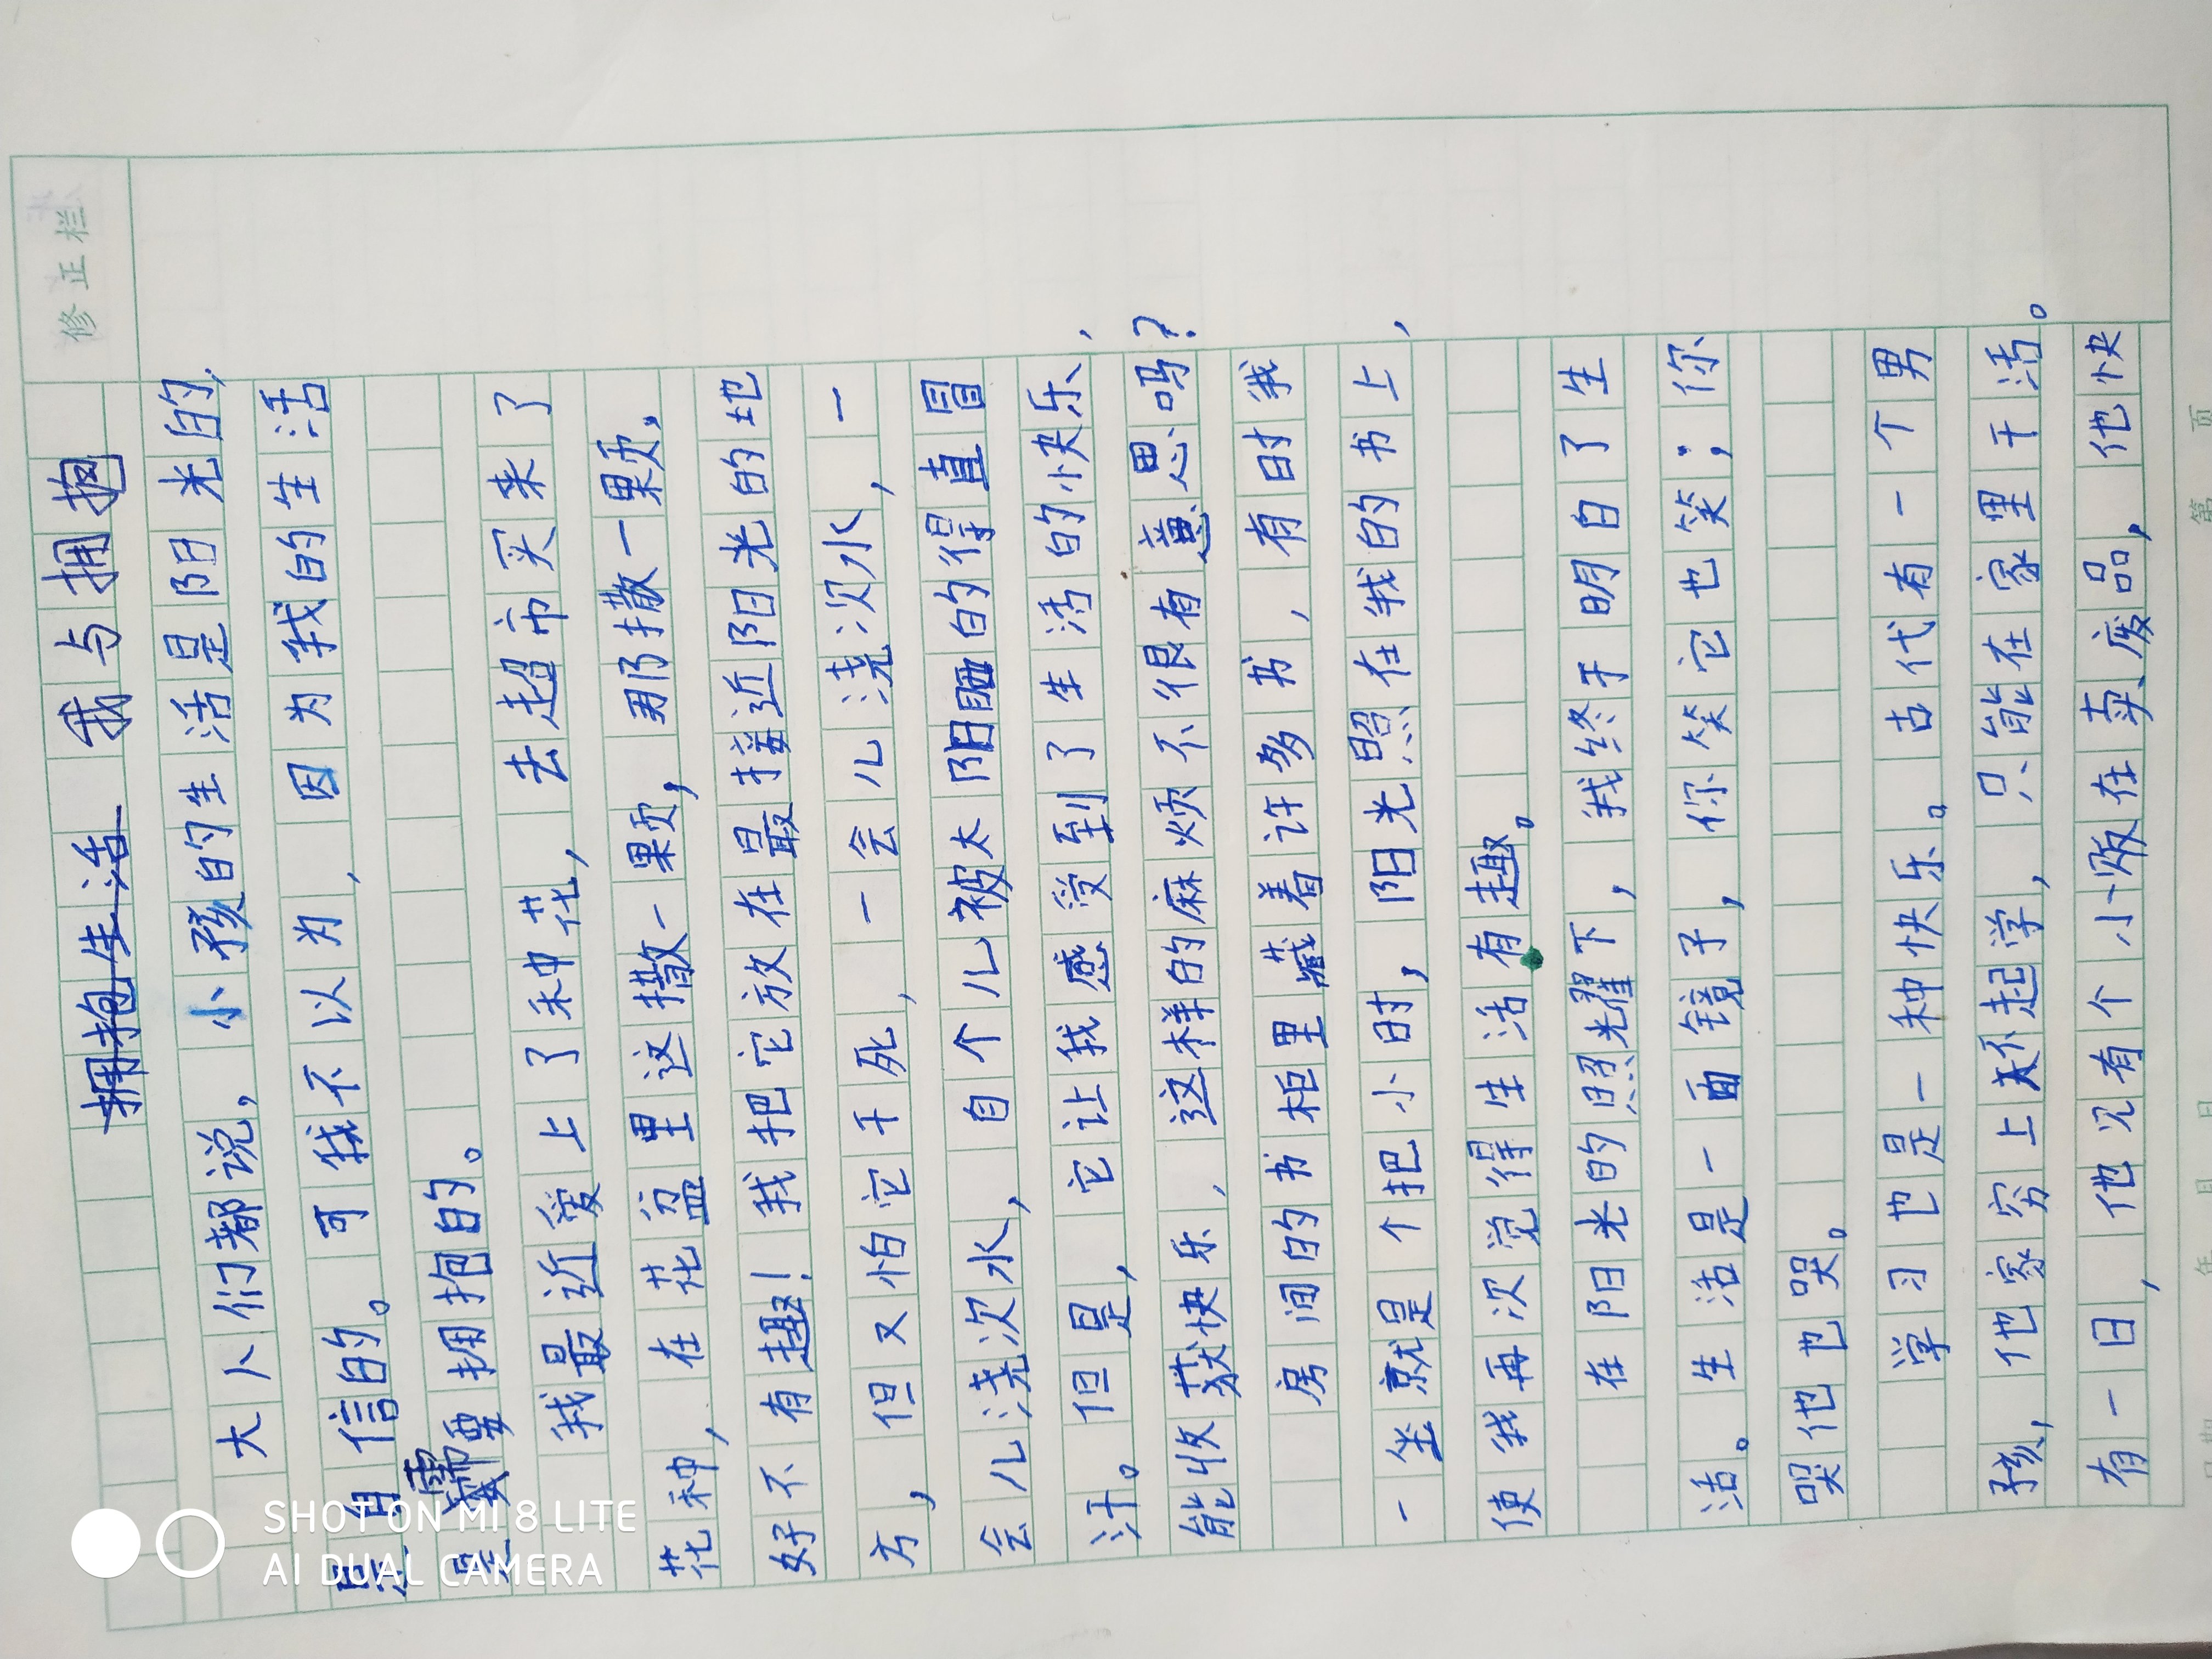 修正栏
拥抱生活 我与拥抱
大人们都说，小孩的生活是阳光的，
是自信的。可我不以为，因为我的生活
是需要拥抱的。
我最近爱上了种花，去超市买来了
花种，在花盆里这撒一颗，那撒一颗，
好不有趣！我把它放在最接近阳光的地
方，但又怕它干死，一会儿浇次水，一
会儿浇次水，自个儿被太阳晒的得直冒
汁。但是，它让我感受到了生活的小快乐，
能收获快乐，这样的麻烦不很有意思吗？
房间的书柜里藏着许多书，有时我
一坐就是个把小时，阳光照在我的书上，
使我再次觉得生活有趣。
在阳光的照耀下，我终于明白了生
活。生活是一面镜子，你笑它也笑；你
哭他也哭。
学习也是一种快乐。古代有一个男
孩，他家穷上不起学，只能在家里干活。
有一日，他见有个小贩在卖废品，他快
第 页
年 月 日
SHOT ON MI 8 LITE
AI DUAL CAMERA